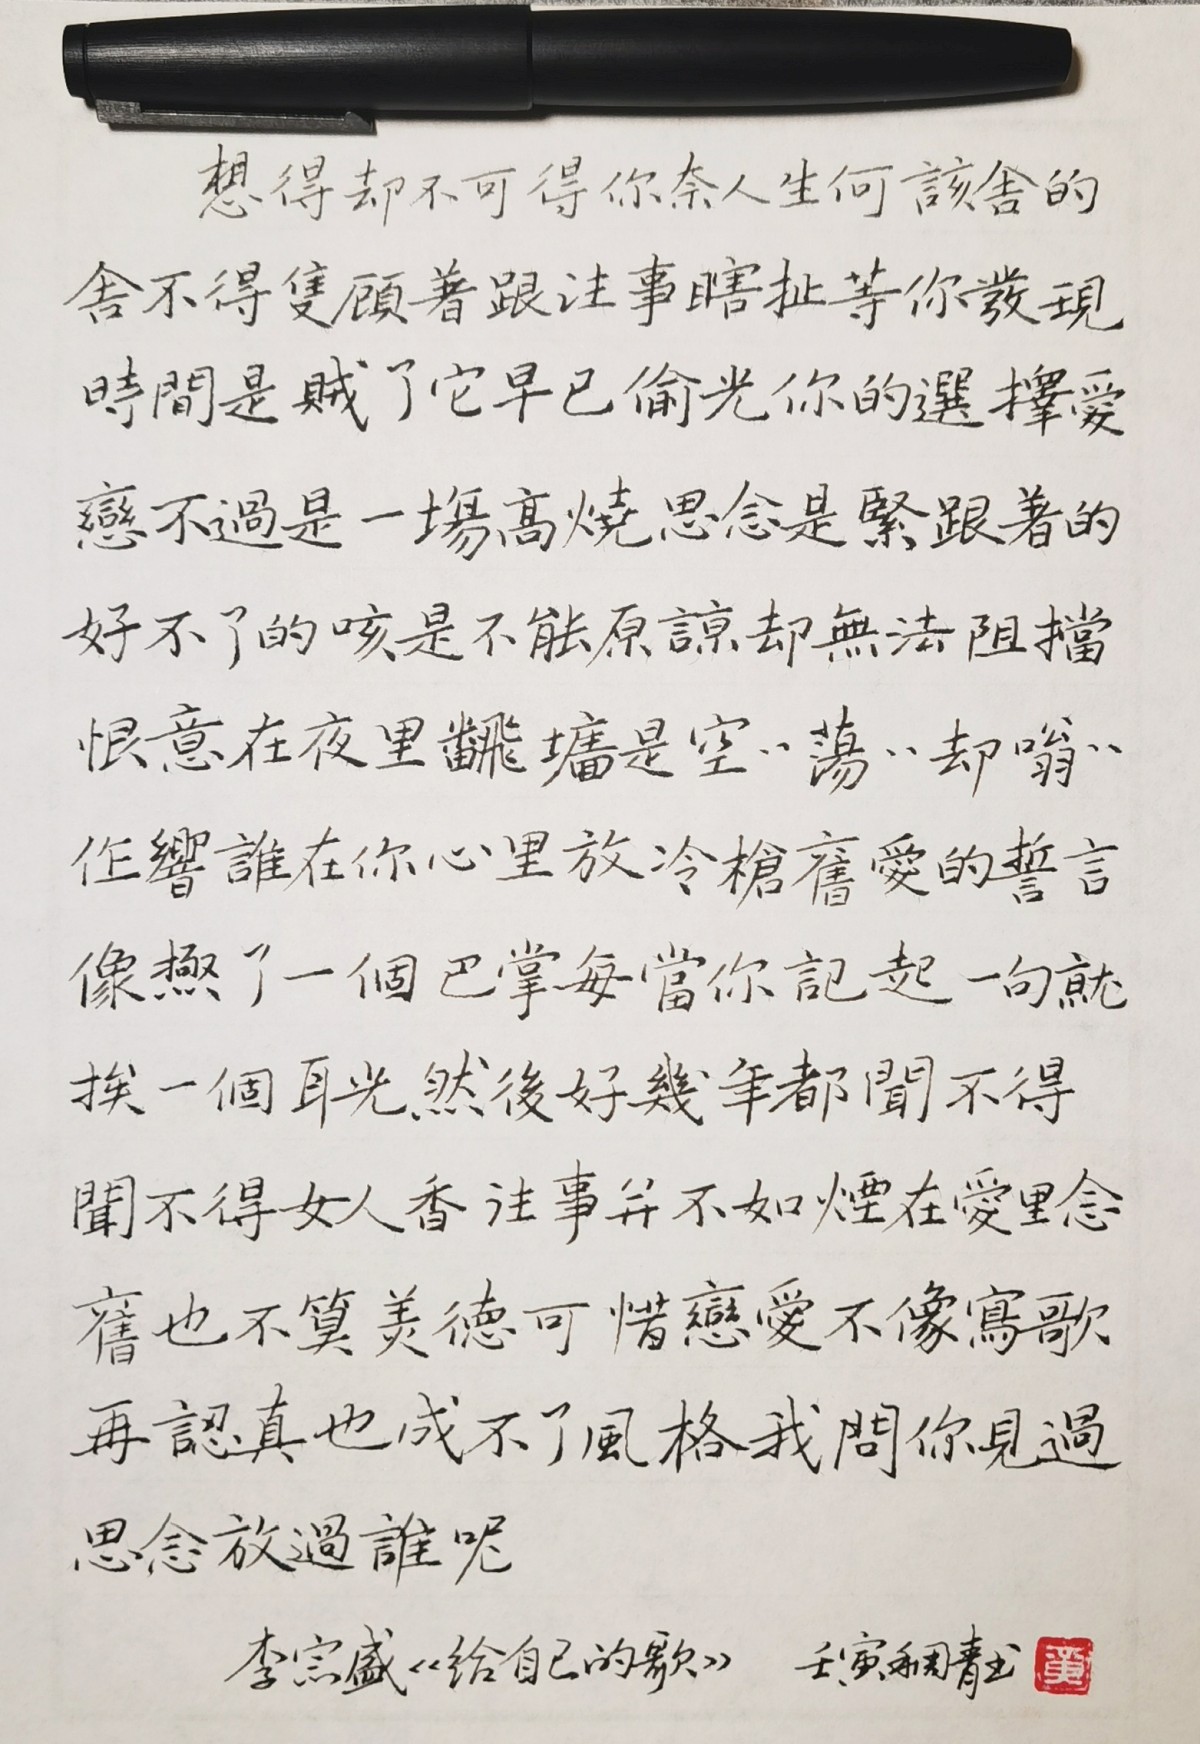 想得却不可得你奈人生何該舍的
舍不得隻顧著跟往事瞎扯等你發現
時間是賊了它早已偷光你的選擇愛
戀不過是一場高燒思念是緊跟著的
好不了的咳是不能原諒却無法阻擋
恨意在夜里翻墻是空々蕩々却嗡々
作響誰在你心里放冷槍舊愛的誓言
像極了一個巴掌每當你記起一句就
挨一個耳光然後好幾年都聞不得
聞不得女人香往事并不如煙在愛里念
舊也不算美德可惜戀愛不像寫歌
再認真也成不了風格我問你見過
思念放過誰呢
李宗盛《给自己的歌》 壬寅稠青书